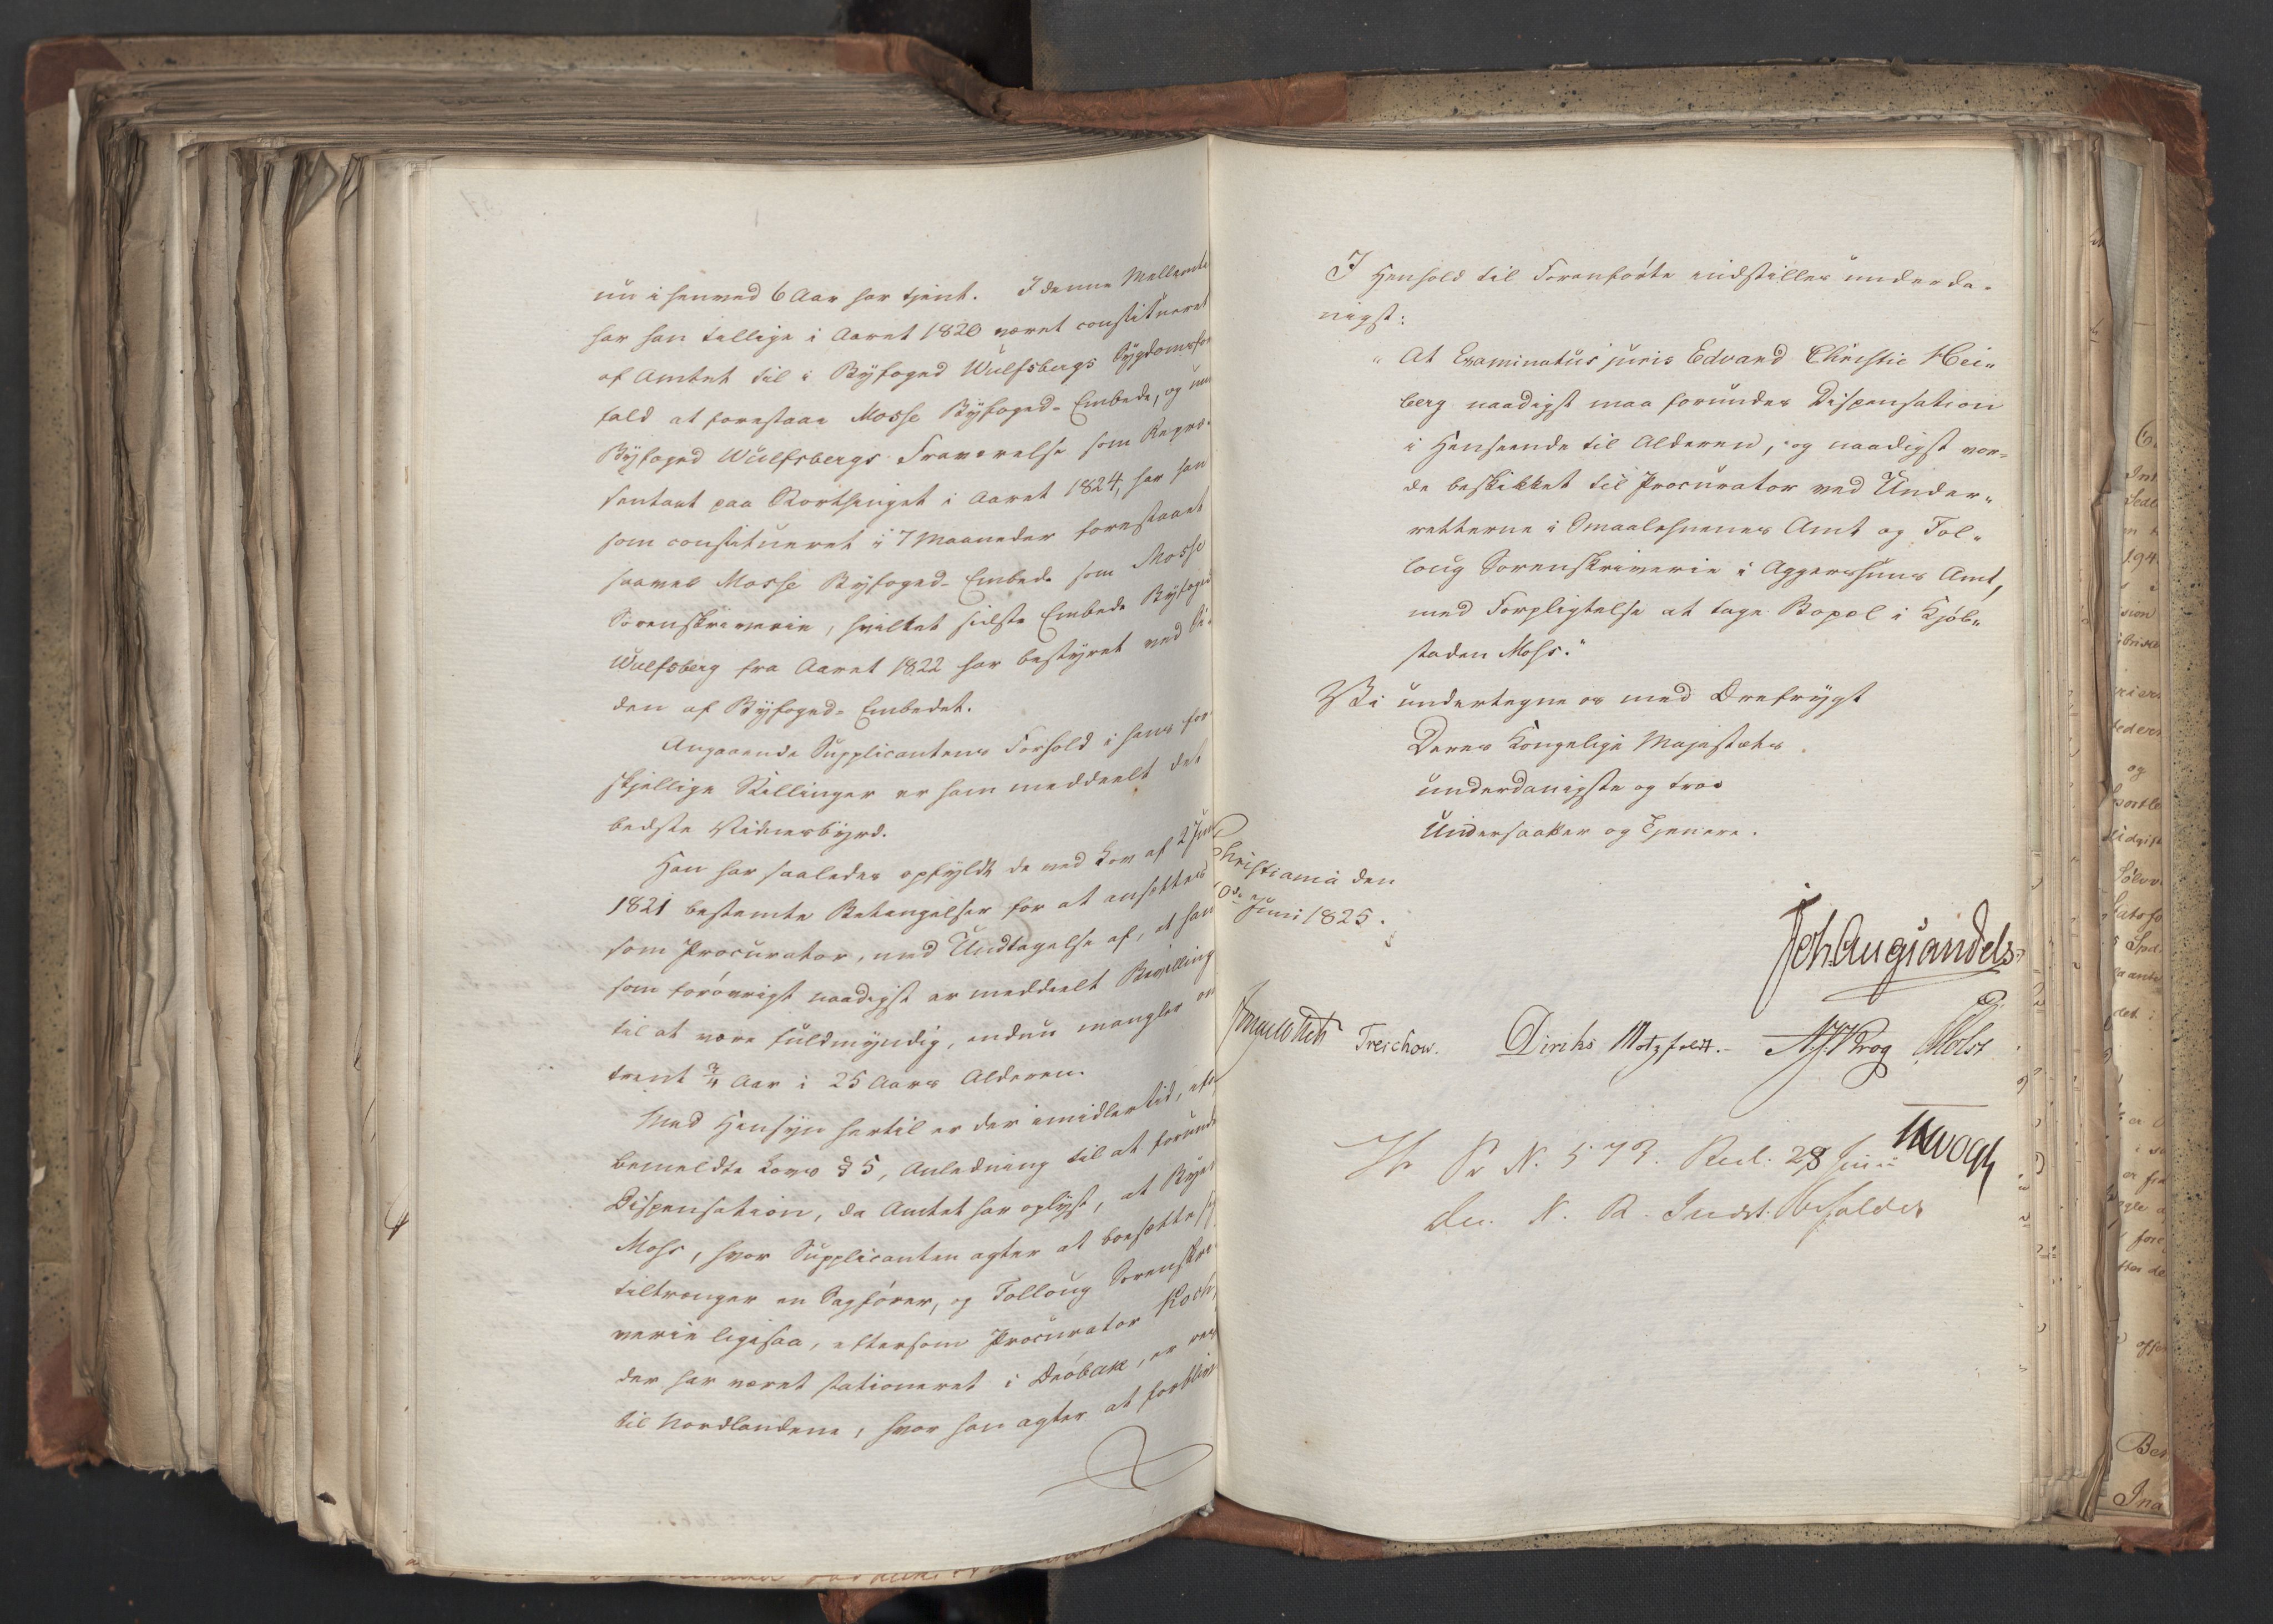 nu i henved 6 Aar har tjent. I denne Mellemti
har han tillige i Aaret 1820 været constitueret
af Amtet til i Byfoged Wulfsbergs Sygdomsfor
fald at forestaae Mosse Byfoged-Embede, og un
Byfoged Wulfsbergs Fraværelse som Repræ-
sentant paa Storthinget i Aaret 1824, har han
som constitueret i 7 Maaneder forestaaet
saavel Mosse Byfoged-Embede som Mosse
Sorenskriverie, hvilket sidste Embede Byfoged
Wulfsberg fra Aaret 1822 har bestyret ved Si-
den af Byfoged-Embedet.
Angaaende Supplicantens Forhold i hans for
skjellige Stillinger er ham meddeelt det
bedste Vidnesbyrd.
Han har saaledes opfyldt de ved Lov af 2 Jun
1821 bestemte Betingelser for at ansættes
som Procurator, med Undtagelse af, at han
som forøvrigt naadigst er meddeelt Bevilling
til at være fuldmyndig, endnu mangler om
trent ¾ Aar i 25 Aars Alderen.
Med Hensyn hertil er der imidlertid, efter
bemeldte Lovs § 5, Anledning til at forunde
Dispensation, da Amtet har oplyst, at Byen
Moss, hvor Supplicanten agter at bosætte sig
tiltrænger en Sagfører, og Folloug Sorenskri-
verie ligesaa, eftersom Procurator Koch,
der har været stationeret i Drøbak, er reis
til Nordlandene, hvor han agter at forblive
I Henhold til Foranførte indstilles underda-
nigst:
"At Examinatus juris Edvard Christie Hei-
berg naadigst maa forundes Dispensation
i Henseende til Alderen, og naadigst vor-
de beskikket til Procurator ved Under-
retterne i Smaalehnenes Amt og Fol-
loug Sorenskriverie i Aggershuus Amt,
med Forpligtelse at tage Bopæl i Kjøb-
staden Moss."
Vi undertegne os med Ærefrygt
Deres Kongelige Majestæts
underdanigste og troe
Undersaatter og Tjenere.
Christiania den
10de Juni 1825.
Joh. Aug. Sandels
Treschow. Diriks Motzfeldt. Krog Holst
Vogt
N. 573. Red. 28 Juni
N. R. Indst. bifaldes